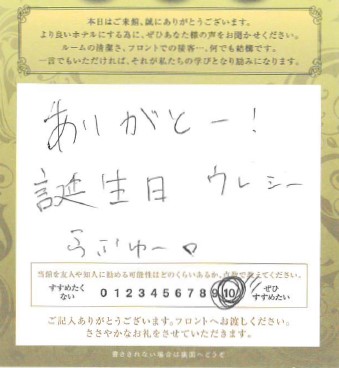 本日はご来館、誠にありがとうございます。
より良いホテルにする為に、ぜひあなた様の声をお聞かせください。
ルームの清潔さ、フロントでの接客…、何でも結構です。
一言でもいただければ、それが私たちの学びとなり励みになります。
ありがとー!
誕生日 ウレシー
らぶゆー
当館を友人や知人に勧める可能性はどのくらいあるか、点数で教えてください。
すすめたくない 0 1 2 3 4 5 6 7 8 9 10 ぜひすすめたい
ご記入ありがとうございます。フロントへお渡しください。
ささやかなお礼をさせていただきます。
書ききれない場合は裏面へどうぞ